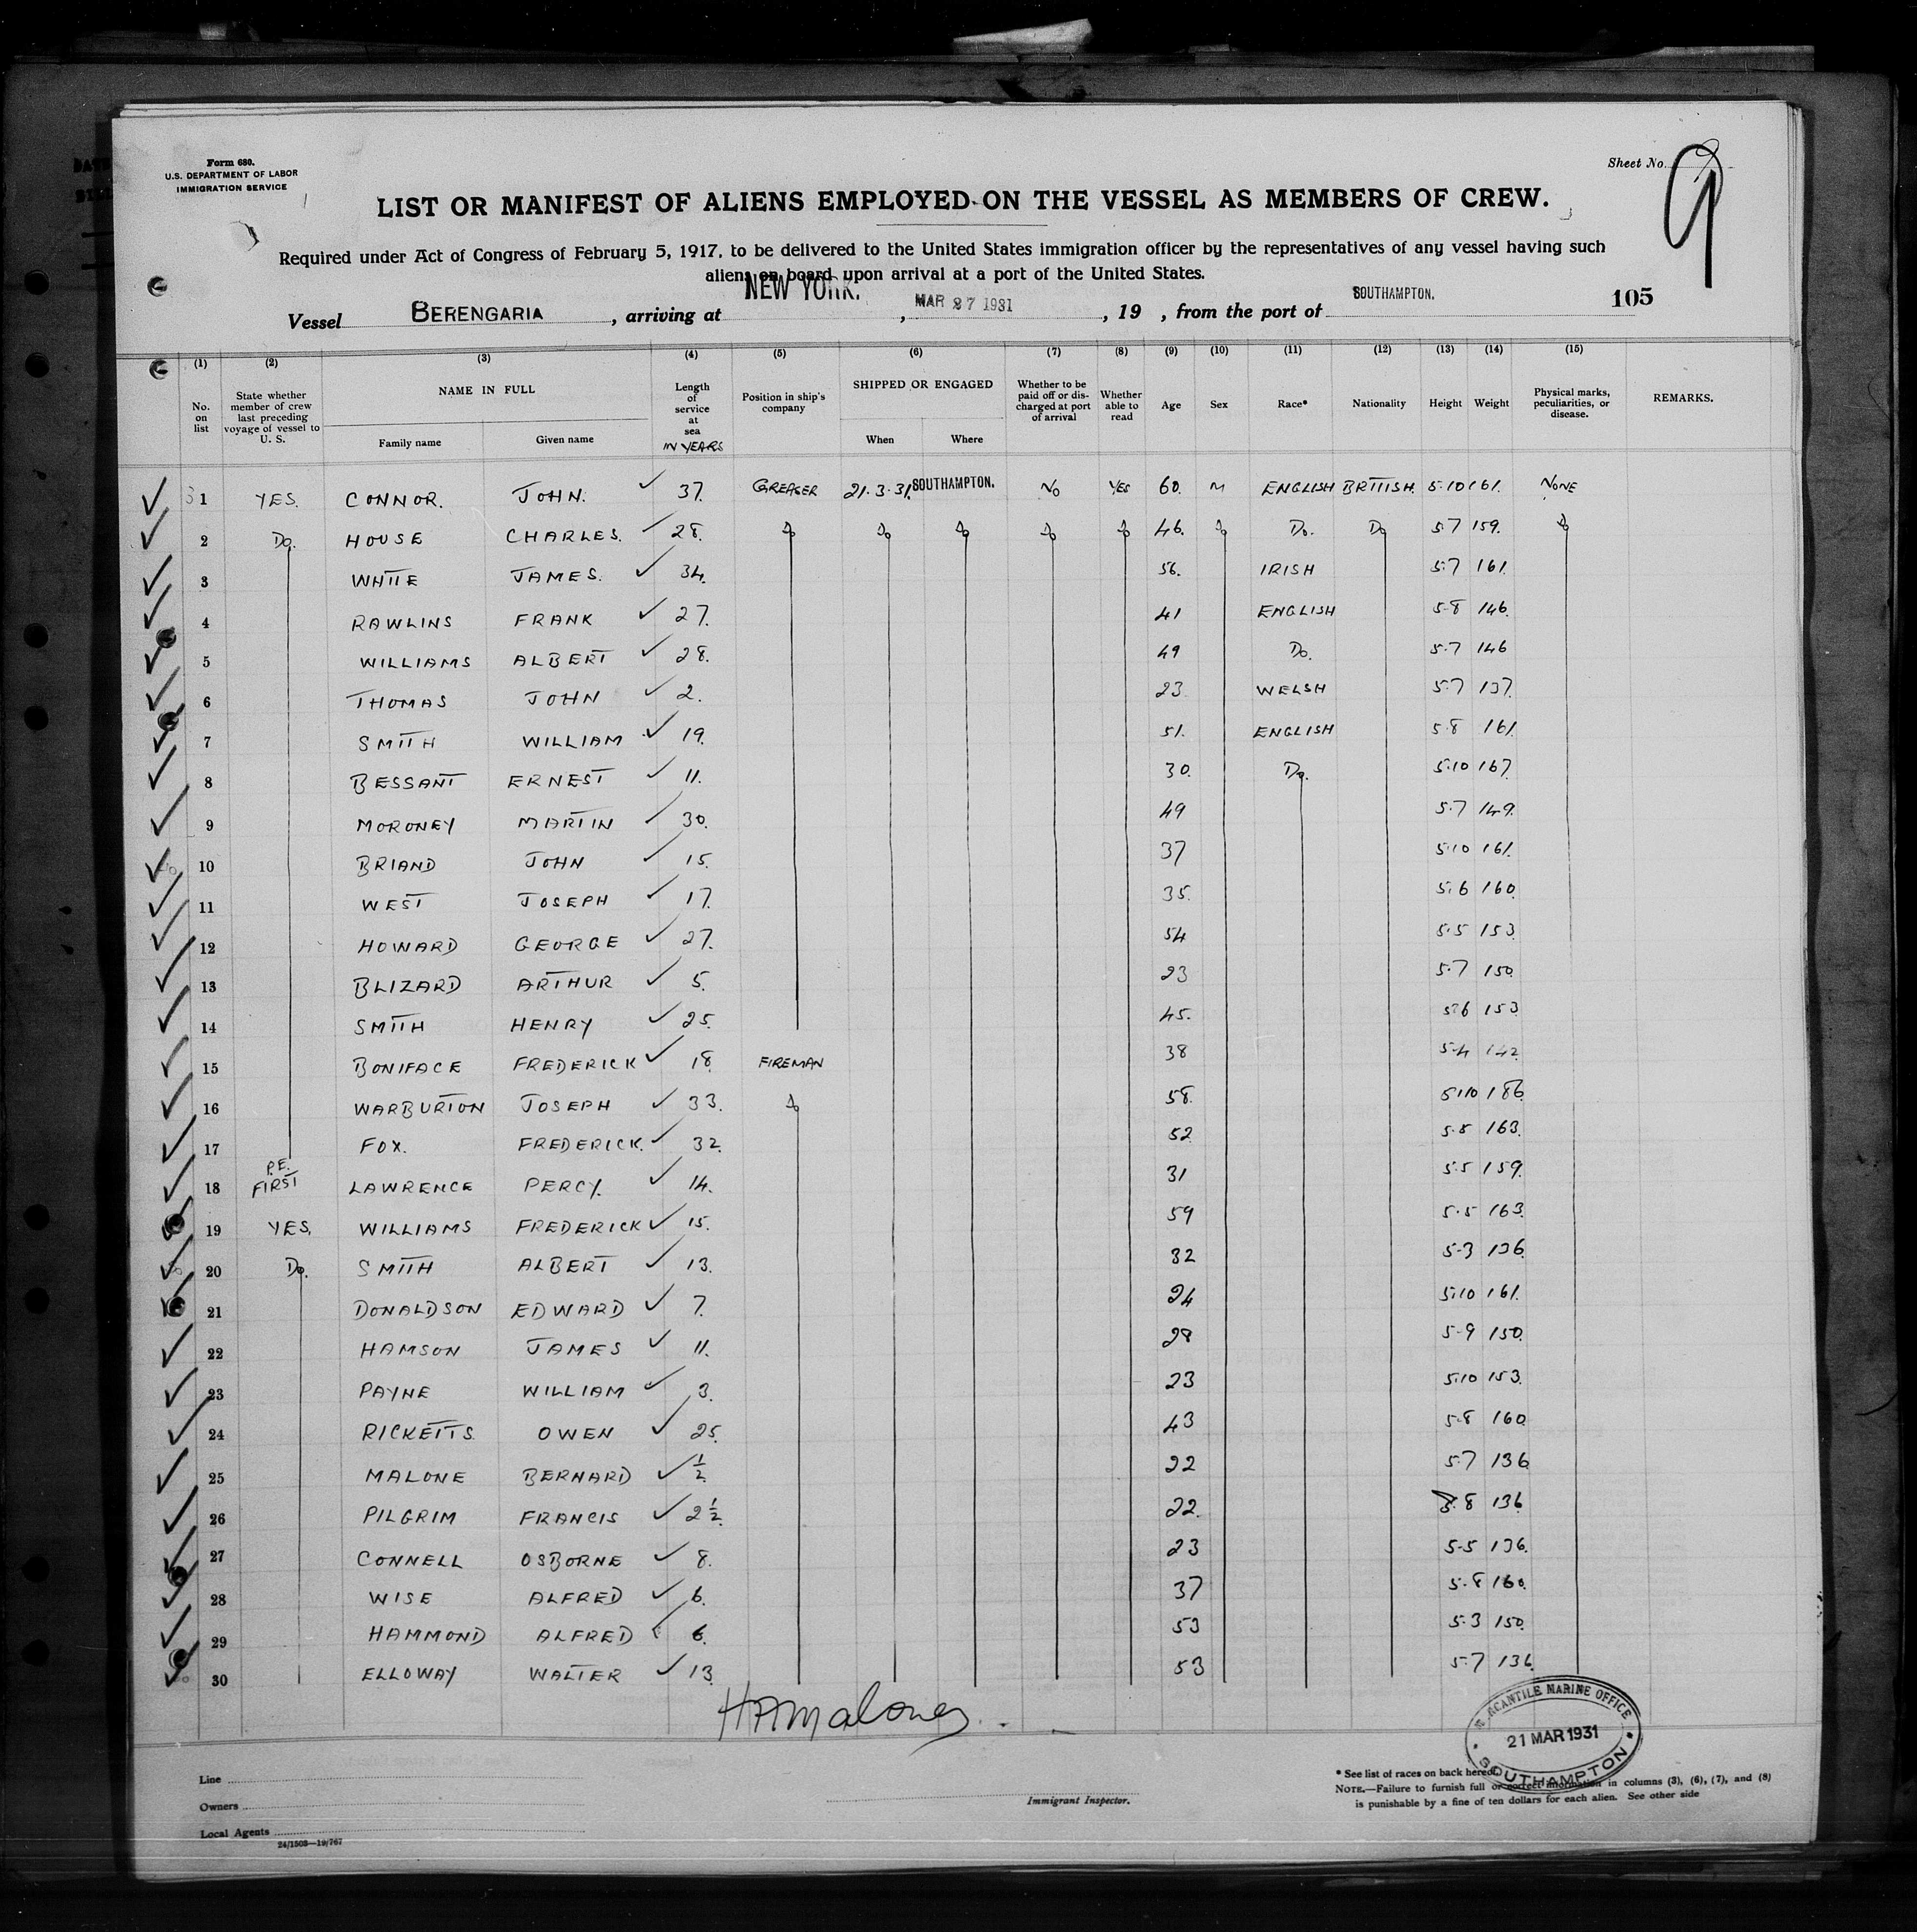 Form 680.
U.S. DEPARTMENT OF LABOR
IMMIGRATION SERVICE
Sheet No. 9
LIST OR MANIFEST OF ALIENS EMPLOYED ON THE VESSEL AS MEMBERS OF CREW.
Required under Act of Congress of February 5, 1917, to be delivered to the United States immigration officer by the representatives of any vessel having such
aliens on board upon arrival at a port of the United States.
Vessel BERENGARIA, arriving at NEW YORK., MAR 27 1931, 19 , from the port of SOUTHAMPTON. 105
(1) (2) (3) (4) (5) (6) (7) (8) (9) (10) (11) (12) (13) (14) (15)
No. on list | State whether member of crew last preceding voyage of vessel to U. S. | NAME IN FULL Family name Given name | Length of service at sea IN YEARS | Position in ship's company | SHIPPED OR ENGAGED When Where | Whether to be paid off or discharged at port of arrival | Whether able to read | Age | Sex | Race* | Nationality | Height | Weight | Physical marks, peculiarities, or disease. | REMARKS.
1 YES. CONNOR. JOHN. 37. GREASER 21.3.31. SOUTHAMPTON. NO YES 60. M ENGLISH BRITISH. 5.10 161. NONE
2 Do. HOUSE CHARLES. 28. Do Do Do Do Do 46. Do Do. Do 5.7 159. Do
3 WHITE JAMES. 34. 56. IRISH 5.7 161.
4 RAWLINS FRANK 27. 41 ENGLISH 5.8 146.
5 WILLIAMS ALBERT 28. 49 Do. 5.7 146
6 THOMAS JOHN 2. 23 WELSH 5.7 137.
7 SMITH WILLIAM 19. 51. ENGLISH 5.8 161.
8 BESSANT ERNEST 11. 30. Do. 5.10 167.
9 MORONEY MARTIN 30. 49 5.7 149.
10 BRIAND JOHN 15. 37 5.10 161.
11 WEST JOSEPH 17. 35. 5.6 160.
12 HOWARD GEORGE 27. 54 5.5 153.
13 BLIZARD ARTHUR 5. 23 5.7 150
14 SMITH HENRY 25. 45. 5.6 153
15 BONIFACE FREDERICK 18. FIREMAN 38 5.4 142
16 WARBURTON JOSEPH 33. Do 58. 5.10 186.
17 FOX. FREDERICK. 32. 52. 5.8 163.
18 P.E. FIRST LAWRENCE PERCY. 14. 31 5.5 159.
19 YES. WILLIAMS FREDERICK 15. 59 5.5 163.
20 Do. SMITH ALBERT 13. 32 5.3 136.
21 DONALDSON EDWARD 7. 24 5.10 161.
22 HAMSON JAMES 11. 28 5.9 150.
23 PAYNE WILLIAM 3. 23 5.10 153.
24 RICKETTS OWEN 25. 43 5.8 160.
25 MALONE BERNARD ½. 22 5.7 136
26 PILGRIM FRANCIS 2½. 22. 5.8 136
27 CONNELL OSBORNE 8. 23 5.5 136.
28 WISE ALFRED 6. 37 5.8 160.
29 HAMMOND ALFRED 6. 53 5.3 150.
30 ELLOWAY WALTER 13. 53 5.7 136.
MERCANTILE MARINE OFFICE
21 MAR 1931
SOUTHAMPTON
Line
Owners
Local Agents
24/1503—19/767
Immigrant Inspector.
* See list of races on back hereof.
NOTE.—Failure to furnish full or correct information in columns (3), (6), (7), and (8)
is punishable by a fine of ten dollars for each alien. See other side